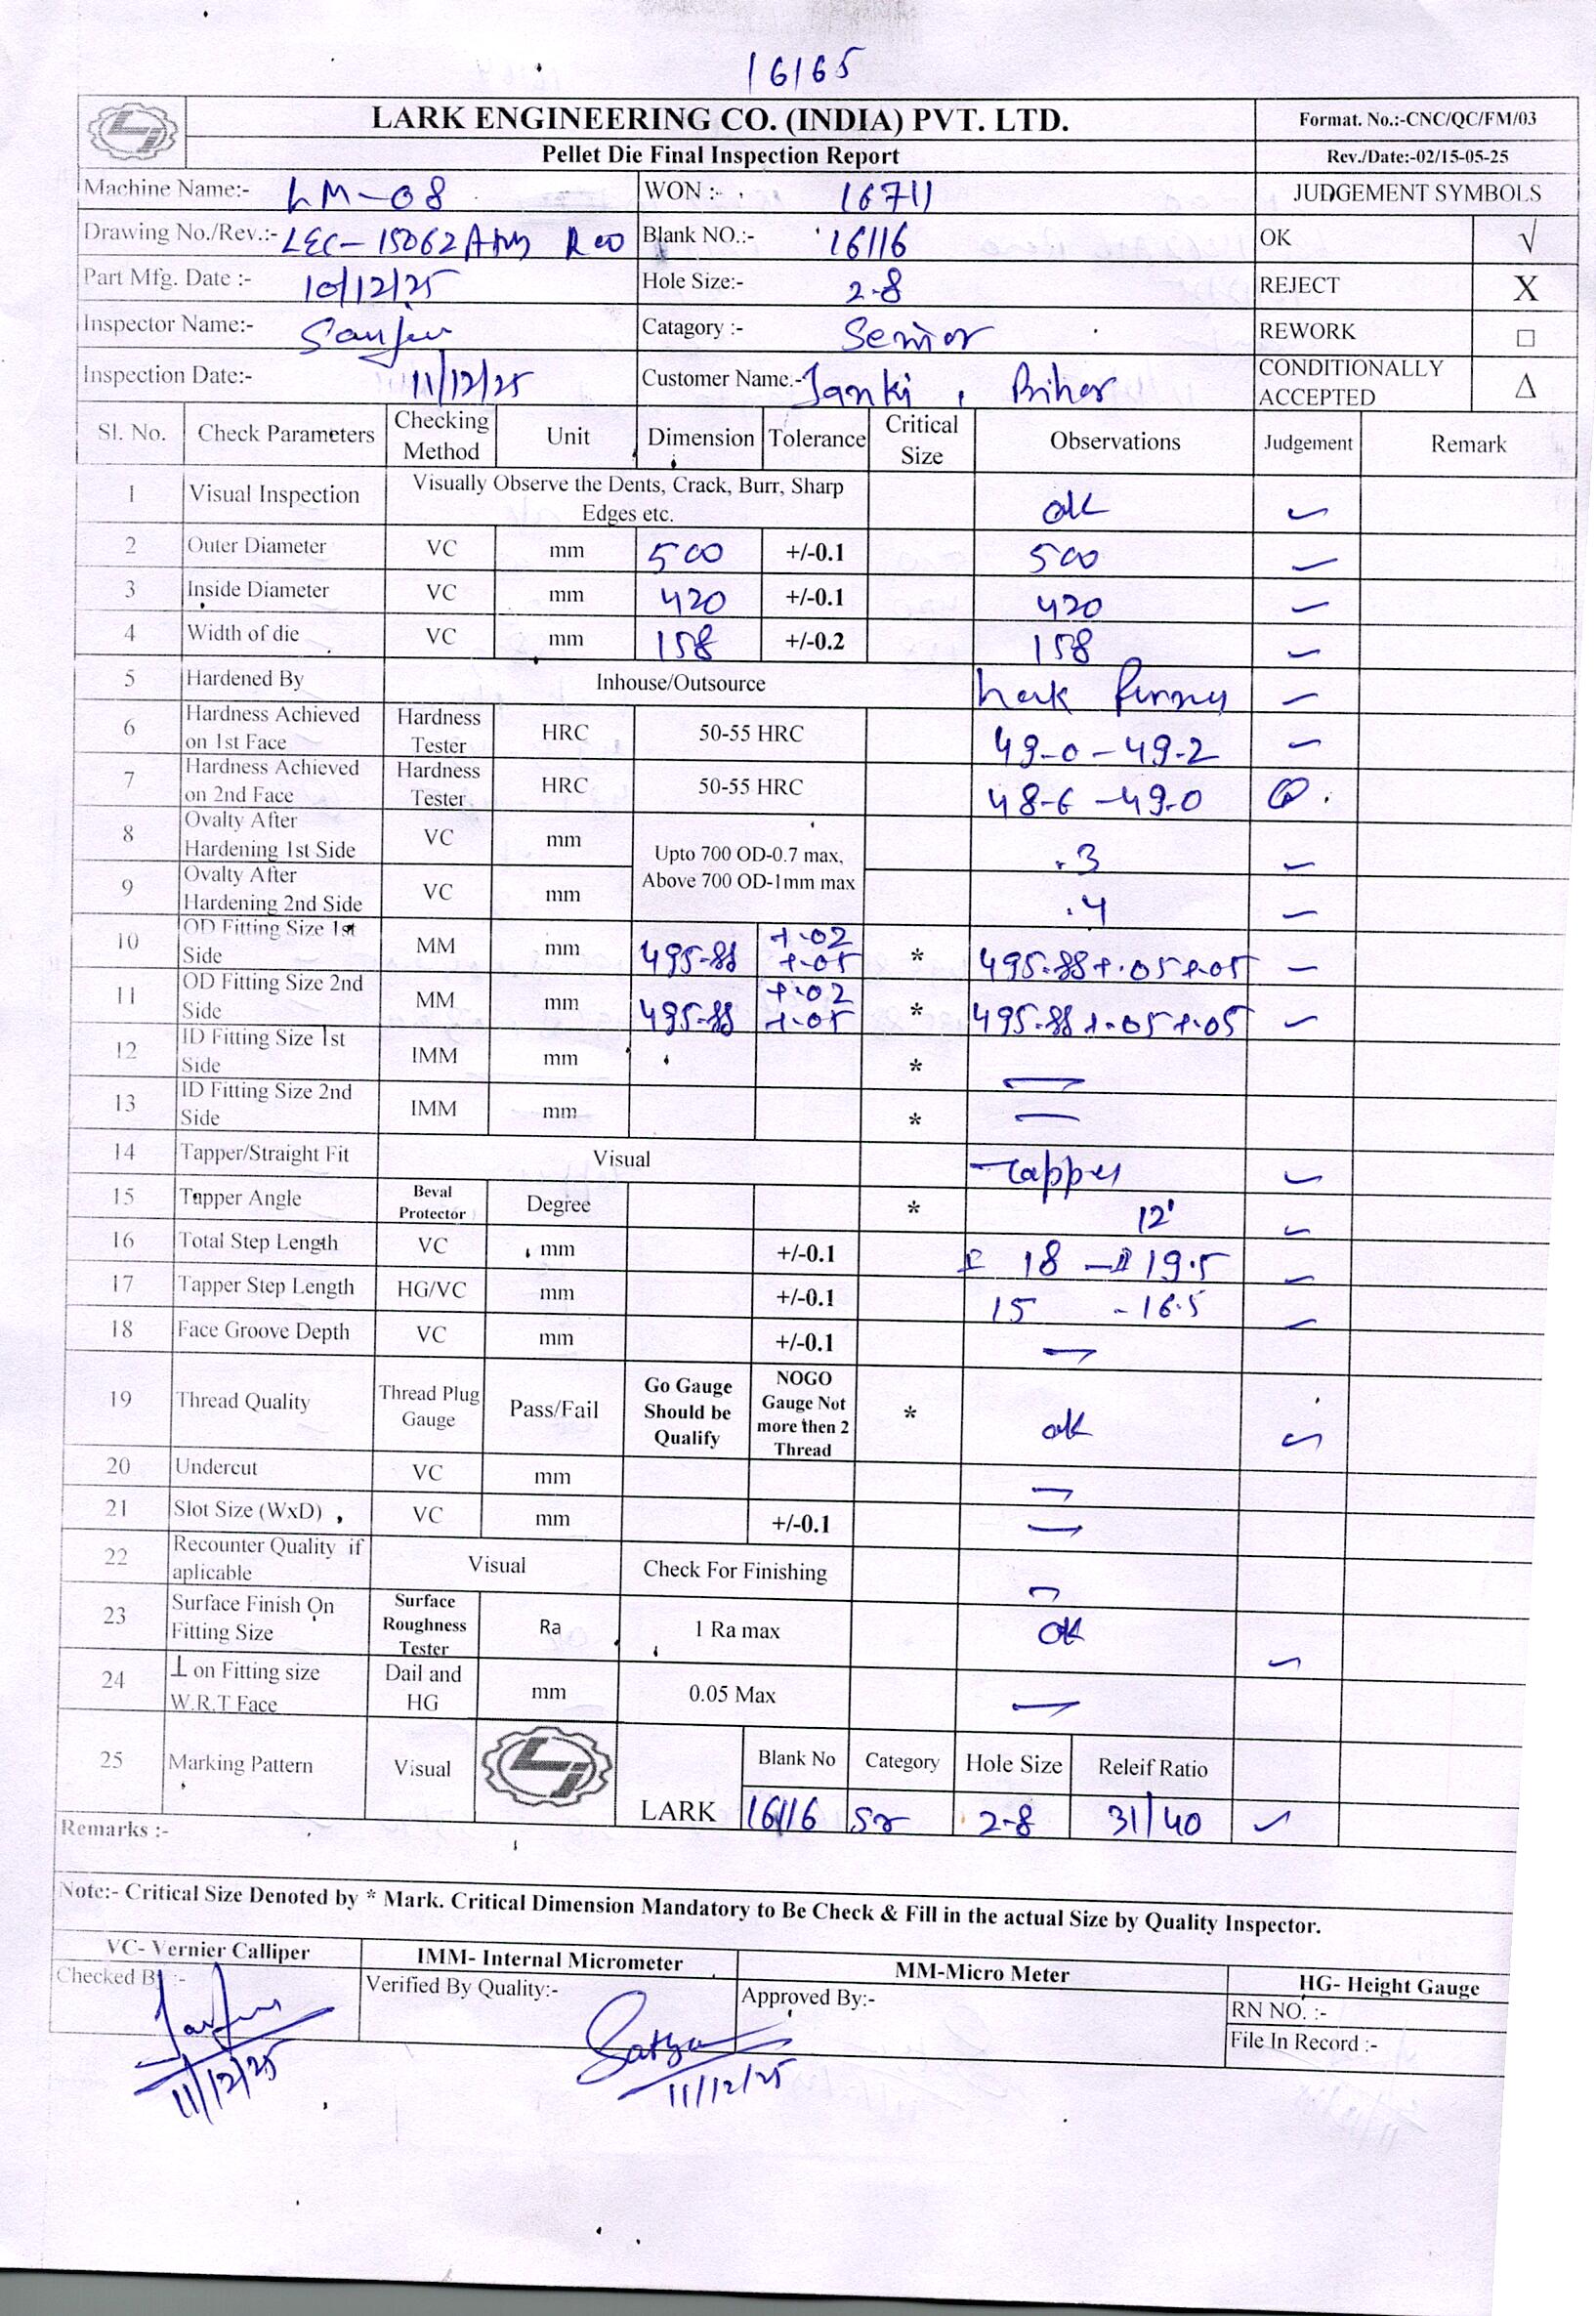 16165
LARK ENGINEERING CO. (INDIA) PVT. LTD.
Format. No.:-CNC/QC/FM/03
Pellet Die Final Inspection Report
Rev./Date:-02/15-05-25
Machine Name:- LM-08 WON :- 16711 JUDGEMENT SYMBOLS
Drawing No./Rev.:- LEC-15062 R00 Blank NO.:- 16116 OK √
Part Mfg. Date :- 10/12/25 Hole Size:- 2.8 REJECT X
Inspector Name:- Catagory :- Senior REWORK □
Inspection Date:- 11/12/25 Customer Name.- Janki, Bihar CONDITIONALLY ACCEPTED Δ
Sl. No. Check Parameters Checking Method Unit Dimension Tolerance Critical Size Observations Judgement Remark
1 Visual Inspection Visually Observe the Dents, Crack, Burr, Sharp Edges etc. ok ✓
2 Outer Diameter VC mm 500 +/-0.1 500 ✓
3 Inside Diameter VC mm 420 +/-0.1 420 ✓
4 Width of die VC mm 158 +/-0.2 158 ✓
5 Hardened By Inhouse/Outsource Lark ✓
6 Hardness Achieved on 1st Face Hardness Tester HRC 50-55 HRC 49.0 - 49.2 ✓
7 Hardness Achieved on 2nd Face Hardness Tester HRC 50-55 HRC 48.6 - 49.0
8 Ovalty After Hardening 1st Side VC mm Upto 700 OD-0.7 max, Above 700 OD-1mm max .3 ✓
9 Ovalty After Hardening 2nd Side VC mm .4 ✓
10 OD Fitting Size 1st Side MM mm 495.88 +.02 +.05 * 495.88 +.05 +.05 ✓
11 OD Fitting Size 2nd Side MM mm 495.88 +.02 +.05 * 495.88 +.05 +.05 ✓
12 ID Fitting Size 1st Side IMM mm * —
13 ID Fitting Size 2nd Side IMM mm * —
14 Tapper/Straight Fit Visual Tapper ✓
15 Tapper Angle Beval Protector Degree * 12' ✓
16 Total Step Length VC mm +/-0.1 I 18 - II 19.5 ✓
17 Tapper Step Length HG/VC mm +/-0.1 15 - 16.5 ✓
18 Face Groove Depth VC mm +/-0.1 —
19 Thread Quality Thread Plug Gauge Pass/Fail Go Gauge Should be Qualify NOGO Gauge Not more then 2 Thread * ok ✓
20 Undercut VC mm —
21 Slot Size (WxD) VC mm +/-0.1 —
22 Recounter Quality if aplicable Visual Check For Finishing —
23 Surface Finish On Fitting Size Surface Roughness Tester Ra 1 Ra max ok ✓
24 ⊥ on Fitting size W.R.T Face Dail and HG mm 0.05 Max —
25 Marking Pattern Visual LARK Blank No Category Hole Size Releif Ratio
16116 Sr 2.8 31/40 ✓
Remarks :-
Note:- Critical Size Denoted by * Mark. Critical Dimension Mandatory to Be Check & Fill in the actual Size by Quality Inspector.
VC- Vernier Calliper IMM- Internal Micrometer MM-Micro Meter HG- Height Gauge
Checked By :- Verified By Quality:- Approved By:- RN NO. :-
File In Record :-
Satya
11/12/25 11/12/25